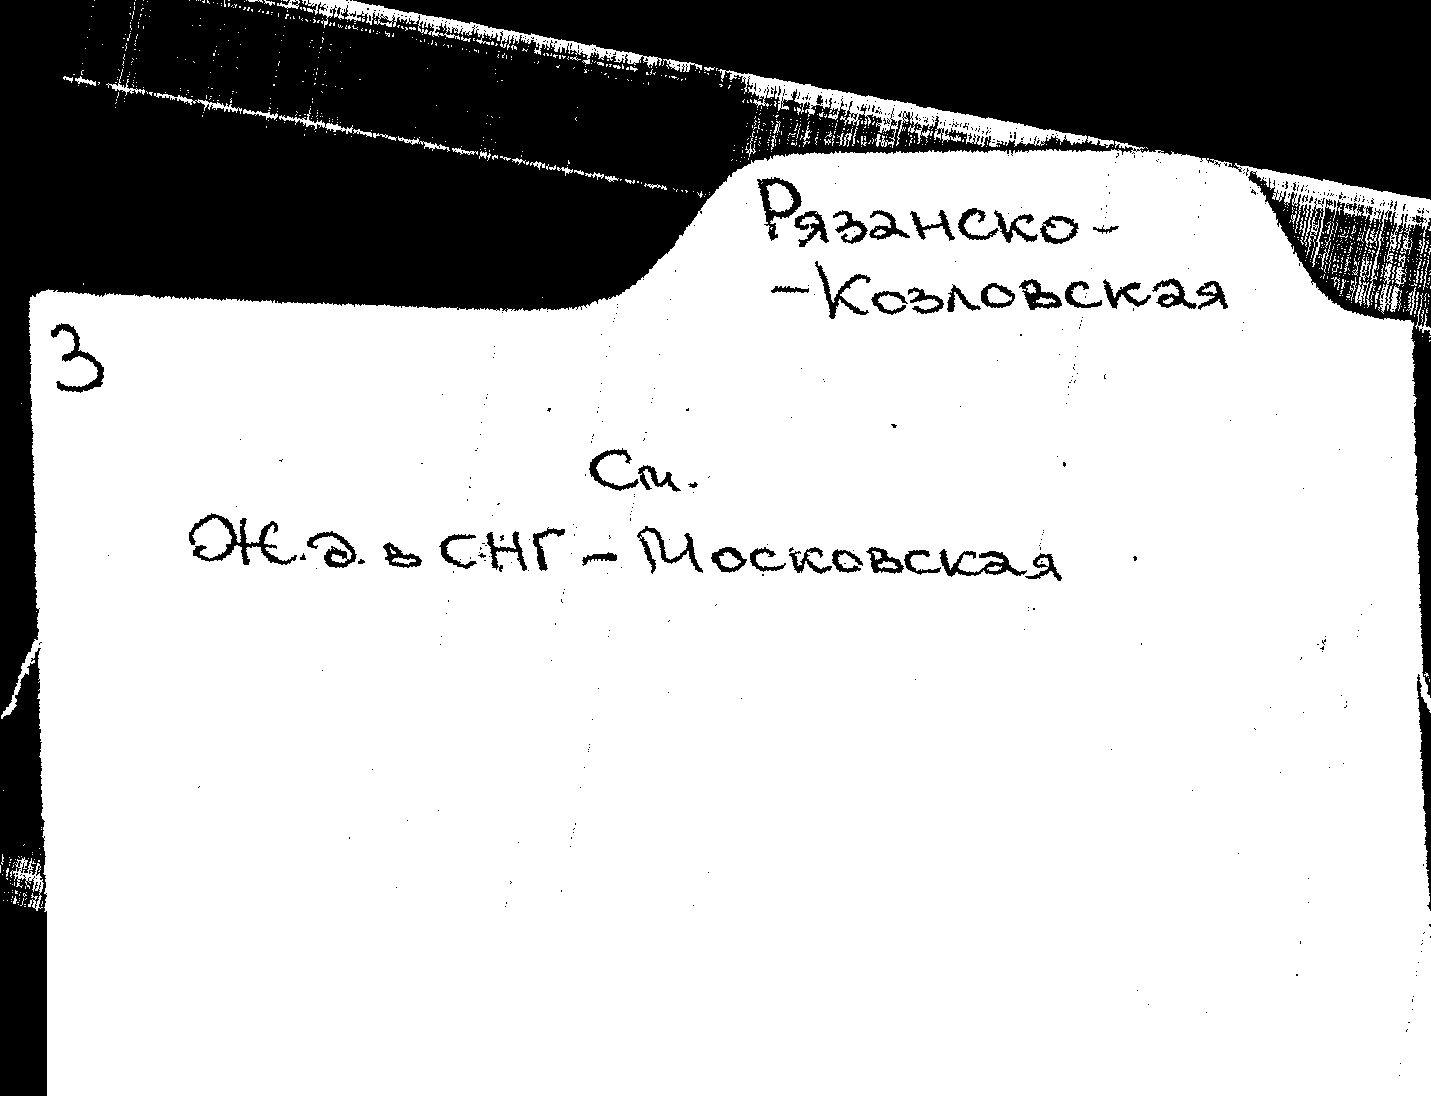 Рязанско-
-Козловская
3
См.
Ж.д. в СНГ - Московская